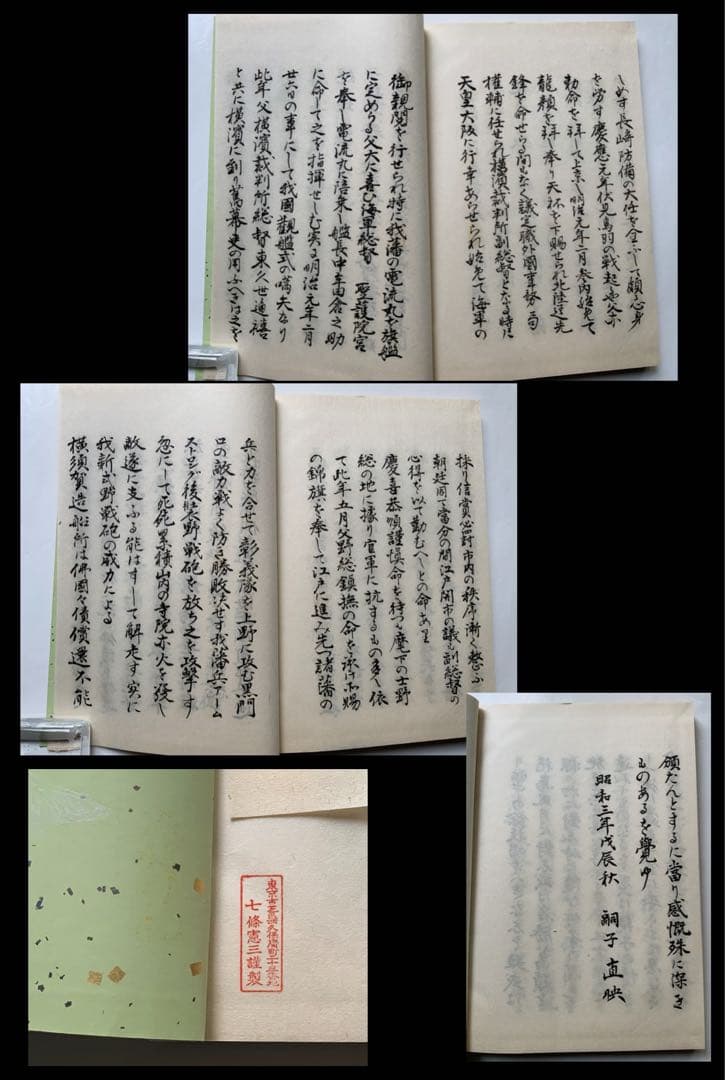 しめす長崎防備の大任を全ふして頗る心身
を労す慶應元年伏見鳥羽の戦起るや父亦
勅命を拝して上京し明治元年二月参内始めて
龍顔を拝し奉り天杯を下賜せられ北陸道先
鋒を命せらる間もなく議定職外國事務局
権輔に任せられ横濱裁判所副総督となる時に
天皇大阪に行幸あらせられ始めて海軍の
御親閲を行せられ特に我藩の電流丸を旗艦
に定めらる父大に喜ひ海軍総督 聖護院宮
を奉し電流丸に陪乗し艦長中牟田倉之助
に命して之を指揮せしむ実に明治元年三月
廿六日の事にして我國観艦式の嚆矢なり
此年父横濱裁判所総督東久世通禧
と共に横濱に到り舊幕吏の用ふへきは之を
採り信賞必罰市内の秩序漸く整ふ
朝廷因て當分の間江戸開市の議も副総督の
心得を以て勤むへしとの命あり
慶喜恭順謹慎命を待つも麾下の士野
総の地に據り官軍に抗するもの多く依
て此年五月父野総鎮撫の命を承け賜
の錦旗を奉して江戸に進み先つ諸藩の
兵と力を合せて彰義隊を上野に攻む黒門
口の敵力戦よく防き勝敗決せす我藩兵アーム
ストロング後装野戦砲を放ち之を攻撃す
忽にして死屍累積山内の寺院亦火を発し
敵遂に支ふる能はすして解走す実に
我新式野戦砲の威力による
横須賀造船所は佛國々債償還不能
頒たんとするに當り感慨殊に深き
ものあるを覺ゆ
昭和三年戊辰秋 嗣子 直映
七條憲三謹製